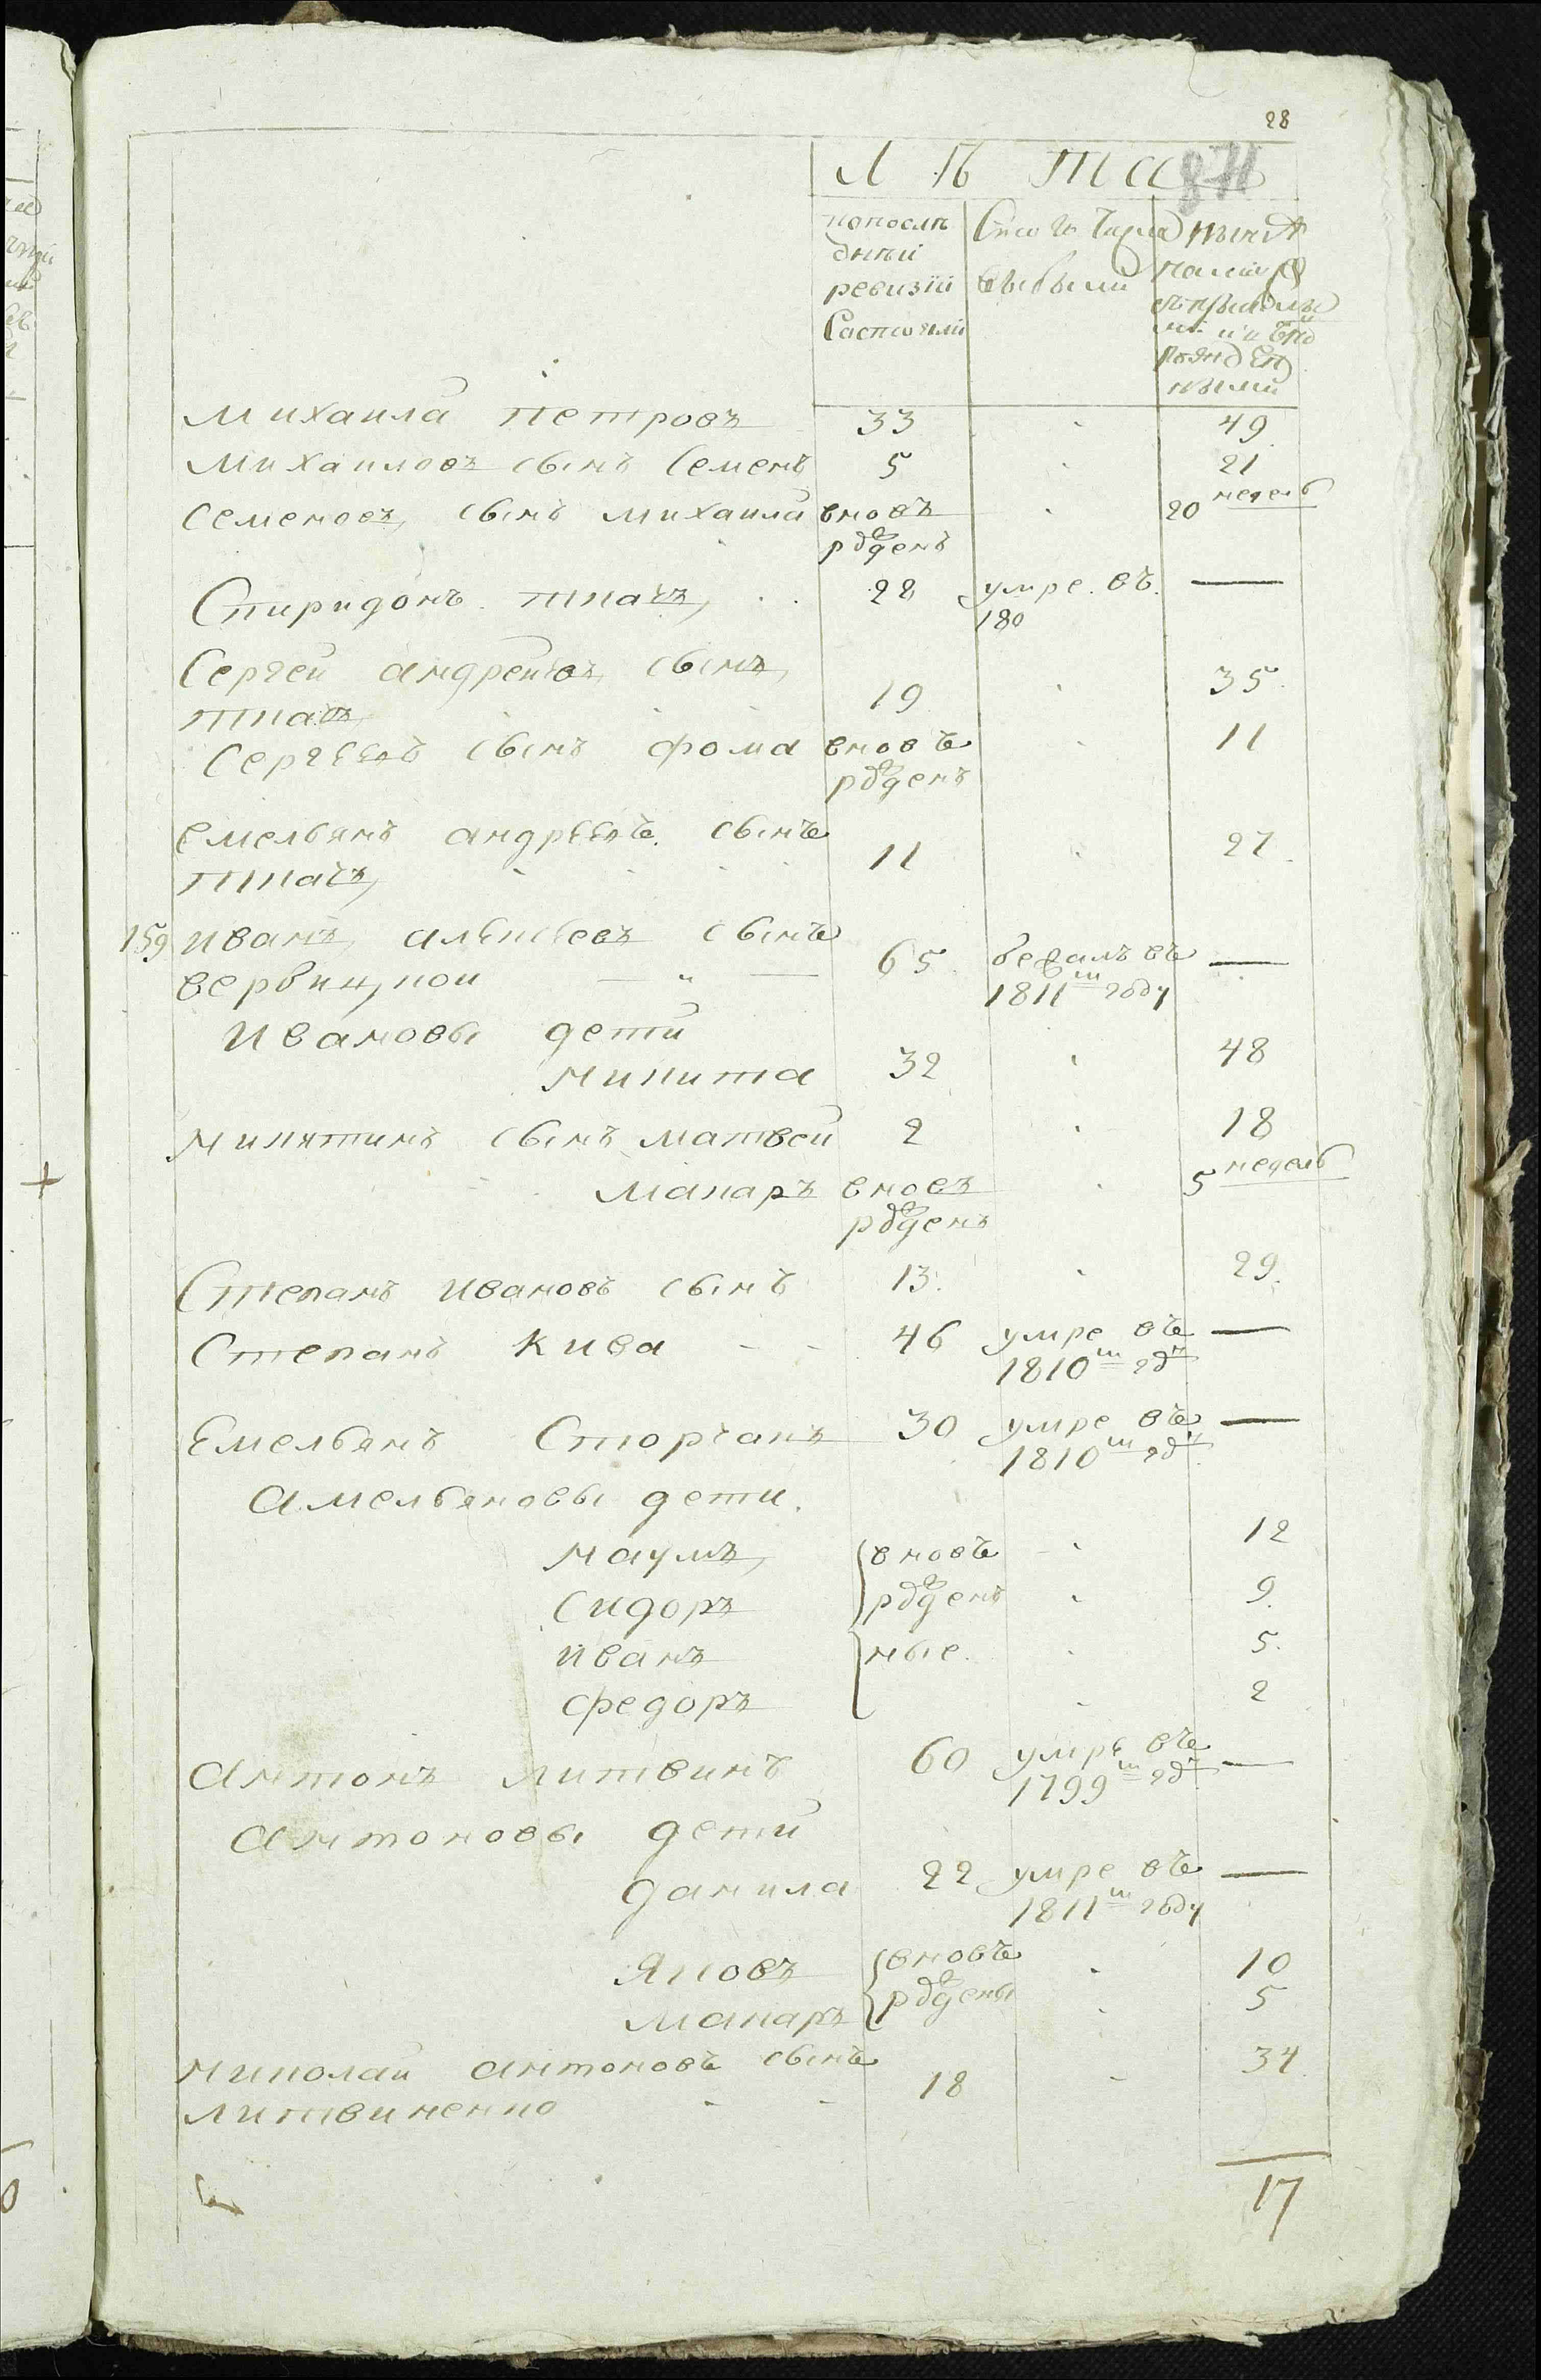 28
Лѣта
871
попослѣ
дней
ревизіи
Состояли
Сего Числа
выбыли
нынѣ
налицо
съ прибылы
ми и внов
рожден
ными
михаила петровъ 33 49
михаиловъ сынъ Семенъ 5 21
Семеновъ сынъ михаила вновъ 20 недель
рожденъ
Спиридонъ ткачъ 28 умре въ —
180
Сергей андреивъ сынъ
ткачъ 19 35
Сергеевъ сынъ фома вновъ 11
рожденъ
емельянъ андреевъ сынъ
ткачъ 11 27
159 иванъ алексеевъ сынъ
вербицкой — " — 65 бежалъ въ —
1811м году
Ивановы дети
никита 32 48
никитинъ сынъ матвей 2 18
макаръ вновъ 5 недель
рожденъ
Степанъ ивановъ сынъ 13 29
Степанъ Кива 46 умре въ —
1810м гду
Емельянъ Сторчакъ 30 умре въ —
1810м гду
Амельяновы дети
наумъ вновъ 12
Сидоръ рожден 9
иванъ ные 5
федоръ 2
Антонъ литвинъ 60 умре въ —
1799м гду
Антоновы дети
данила 22 умре въ —
1811м году
яковъ вновъ 10
макаръ рождены 5
николай антоновъ сынъ
литвиненко 18 34
17